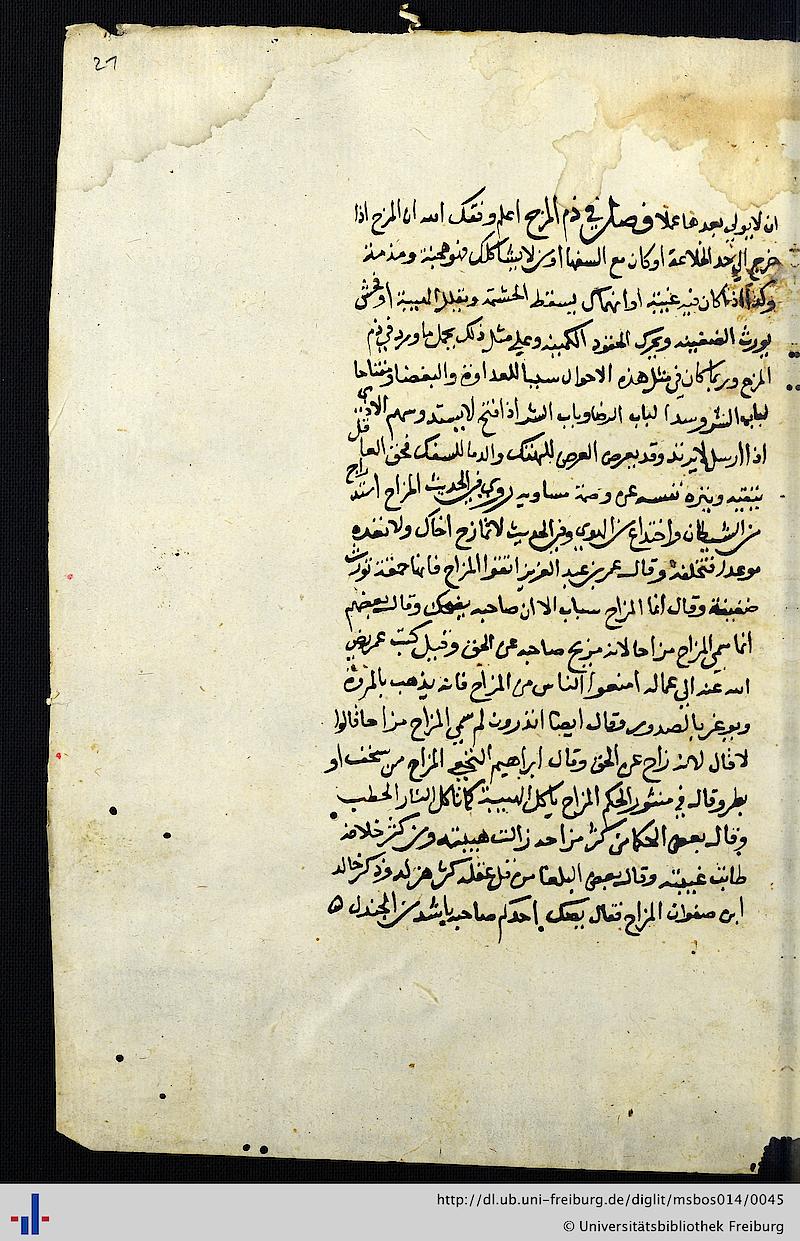 21
ان لا يولي بعدها عملا فصل في ذم المزح اعلم وفقك الله ان المزح اذا
خرج الي حد الخلاعة اوكان مع السفها اومن لا يشاكلك فهو هجنة ومذمة
وكذا اذا كان فيه غيبة او انهماك يسقط الحشمة ويقلل الهيبة او فحش
يورث الضغينه ويحرك الحقود الكمينه وعلي مثل ذلك يحمل ما ورد في ذم
المزح وربما كان في مثل هذه الاحوال سببا للعداوة والبغضا ومفتاحا
لباب الشر وسدا لباب الرضا وباب الشر اذا فتح لا يستد وسهم الاذي
اذا ارسل لا يرتد وقد يعرض العرض للهتك والدما للسفك فحق العاقل
يتقيه وينزه نفسه عن وصمة مساويه روي في الحديث المزاح استدراج
من الشيطان واختداع من الهوي وفي الحديث لا تمازح اخاك ولا تعده
موعدا فتخلفه وقال عمر بن عبد العزيز اتقوا المزاح فانها حمقة تورث
ضغينة وقال انما المزاح سباب الا ان صاحبه يضحك وقال بعضهم
انما سمي المزاح مزاحا لانه مزيح صاحبه عن الحق وقيل كتب عمر رضي
الله عنه الي عماله امنعوا الناس من المزاح فانه يذهب بالمروة
ويوغر بالصدور وقال ايضا اتدرون لم سمي المزاح مزاحا قالوا
لا قال لانه زاح عن الحق وقال ابراهيم النخعي المزاح من سخف او
بطر وقال في منثور الحكم المزاح ياكل الهيبة كما تاكل النار الحطب
وقال بعض الحكما من كثر مزاحه زالت هيبته ومن كثر خلافه
طابت غيبته وقال بعض البلغا من قل عقله كثر هزله وذكر خالد
ابن صفوان المزاح فقال يصك احدكم صاحبه باشد من الجندل ه
http://dl.ub.uni-freiburg.de/diglit/msbos014/0045
© Universitätsbibliothek Freiburg